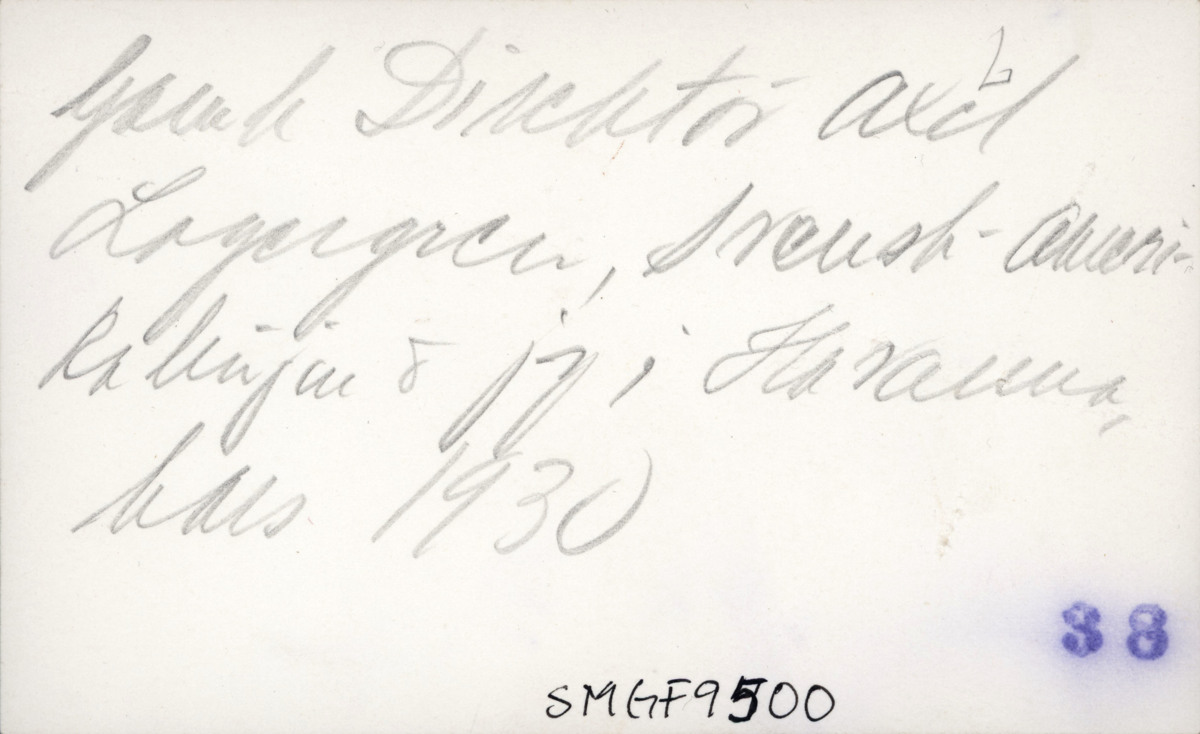 Direktör Axel
Lagergren, Svensk-Ameri-
kalinjen & jg i Havanna,
mars 1930
38
SMGF9500